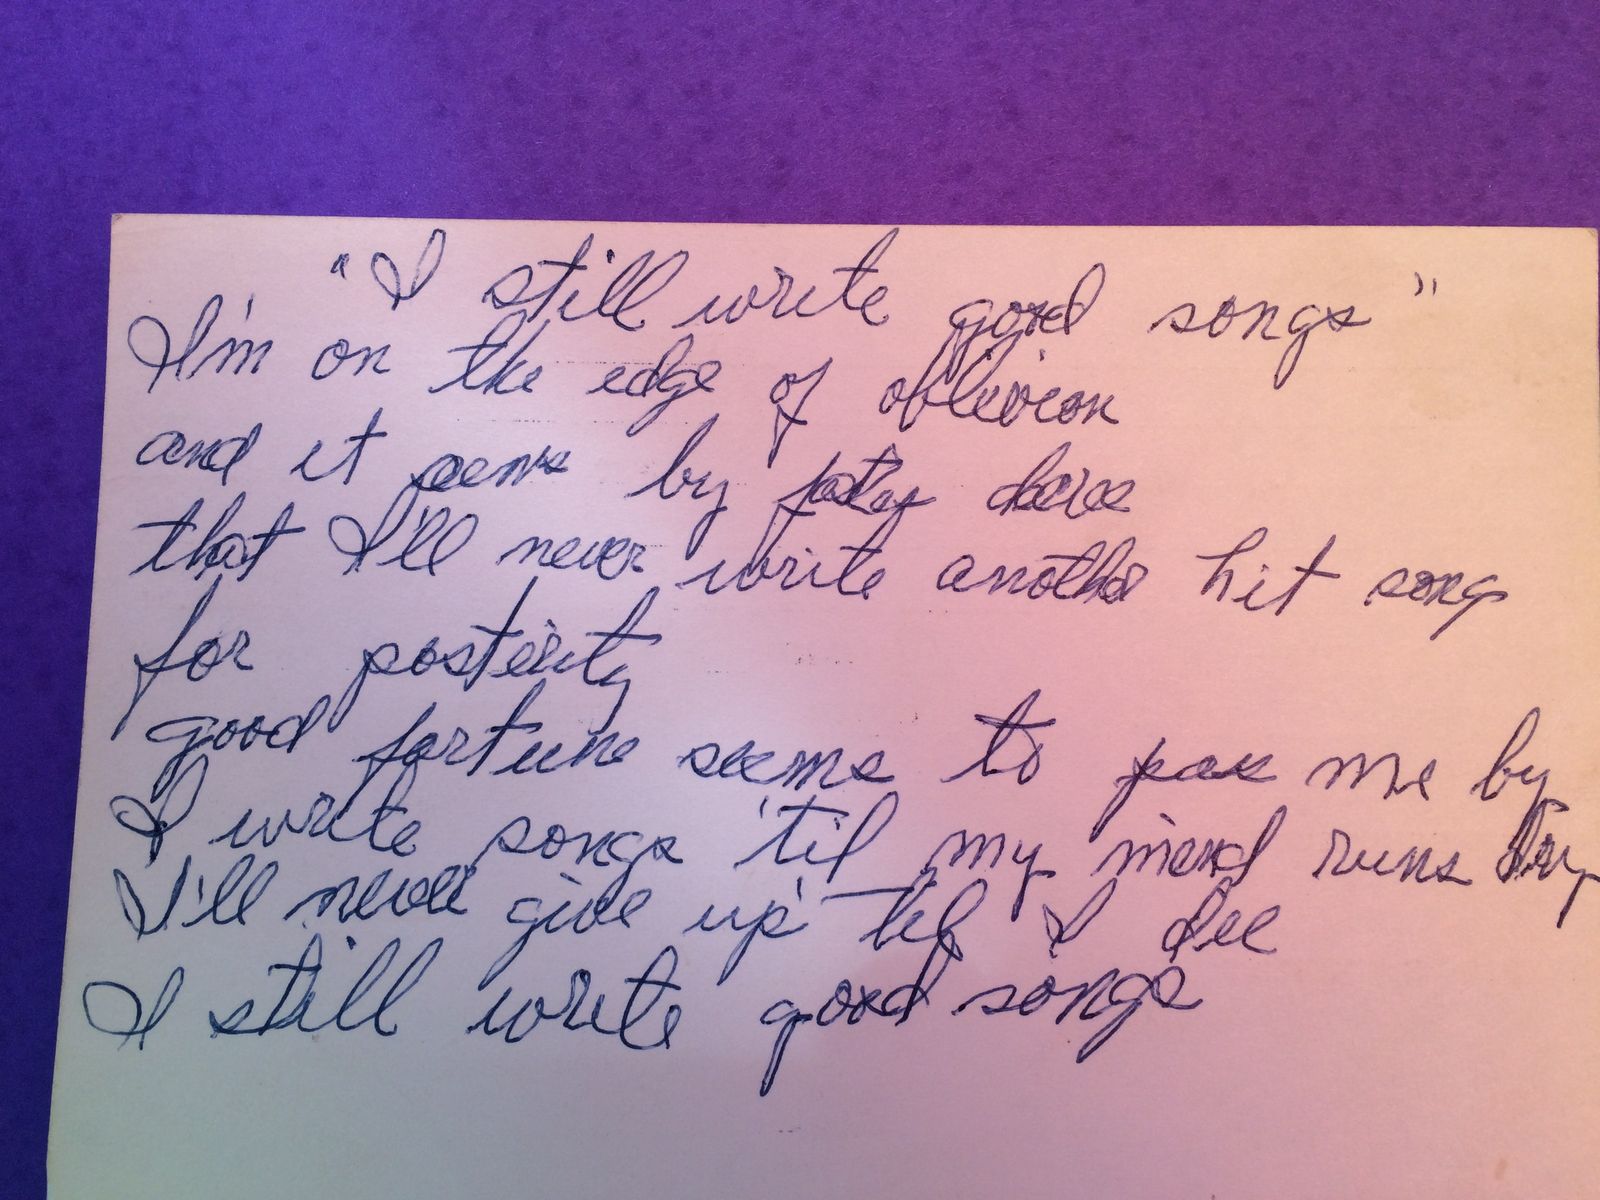 "I still write good songs"
I'm on the edge of oblivion
and it seems by
that I'll never write another hit song
for posterity
good fortune seems to pass me by
I write songs 'til my mind runs dry
I'll never give up 'til I die
I still write good songs